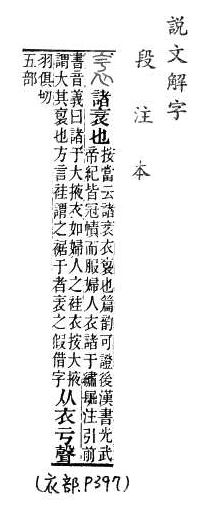 說文解字
段注本
諸衧也
按當云諸衧衣褎也篇韵可證後漢書光武
帝紀皆冠幘而服婦人衣諸于繡镼注引前
書音義曰諸于大掖衣如婦人之袿衣按大掖
謂大其褎也方言袿謂之裾于者衧之假借字
从衣亏聲
羽俱切
五部
(衣部.P397)